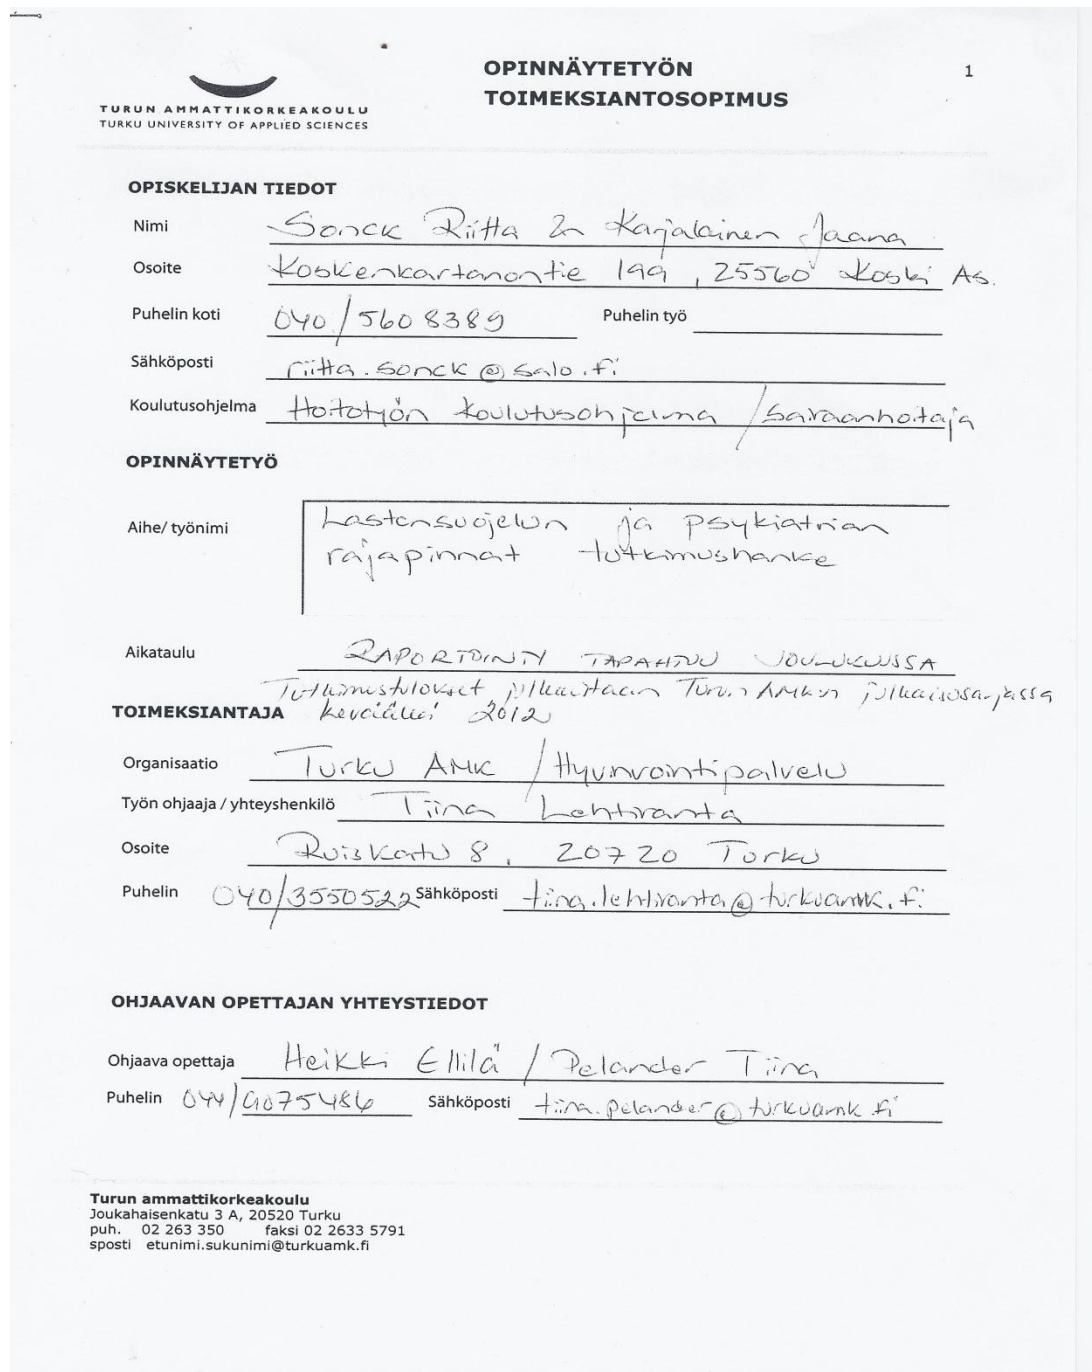 OPINNÄYTETYÖN
TOIMEKSIANTOSOPIMUS
1
TURUN AMMATTIKORKEAKOULU
TURKU UNIVERSITY OF APPLIED SCIENCES
OPISKELIJAN TIEDOT
Nimi Sonck Riitta & Karjalainen Jaana
Osoite Koskenkartanontie 199, 25560 Koski As.
Puhelin koti 040/5608389 Puhelin työ
Sähköposti riitta.sonck@salo.fi
Koulutusohjelma Hoitotyön koulutusohjelma / sairaanhoitaja
OPINNÄYTETYÖ
Aihe/ työnimi Lastensuojelun ja psykiatrian
rajapinnat tutkimushanke
Aikataulu RAPORTOINTI TAPAHTUU JOULUKUUSSA
Tutkimustulokset julkaistaan Turun AMK:n julkaisusarjassa
TOIMEKSIANTAJA keväällä 2012
Organisaatio Turku AMK / Hyvinvointipalvelu
Työn ohjaaja / yhteyshenkilö Tiina Lehtiranta
Osoite Ruiskatu 8, 20720 Turku
Puhelin 040/3550522 Sähköposti tiina.lehtiranta@turkuamk.fi
OHJAAVAN OPETTAJAN YHTEYSTIEDOT
Ohjaava opettaja Heikki Ellilä / Pelander Tiina
Puhelin 044/9075486 Sähköposti tiina.pelander@turkuamk.fi
Turun ammattikorkeakoulu
Joukahaisenkatu 3 A, 20520 Turku
puh. 02 263 350 faksi 02 2633 5791
sposti etunimi.sukunimi@turkuamk.fi